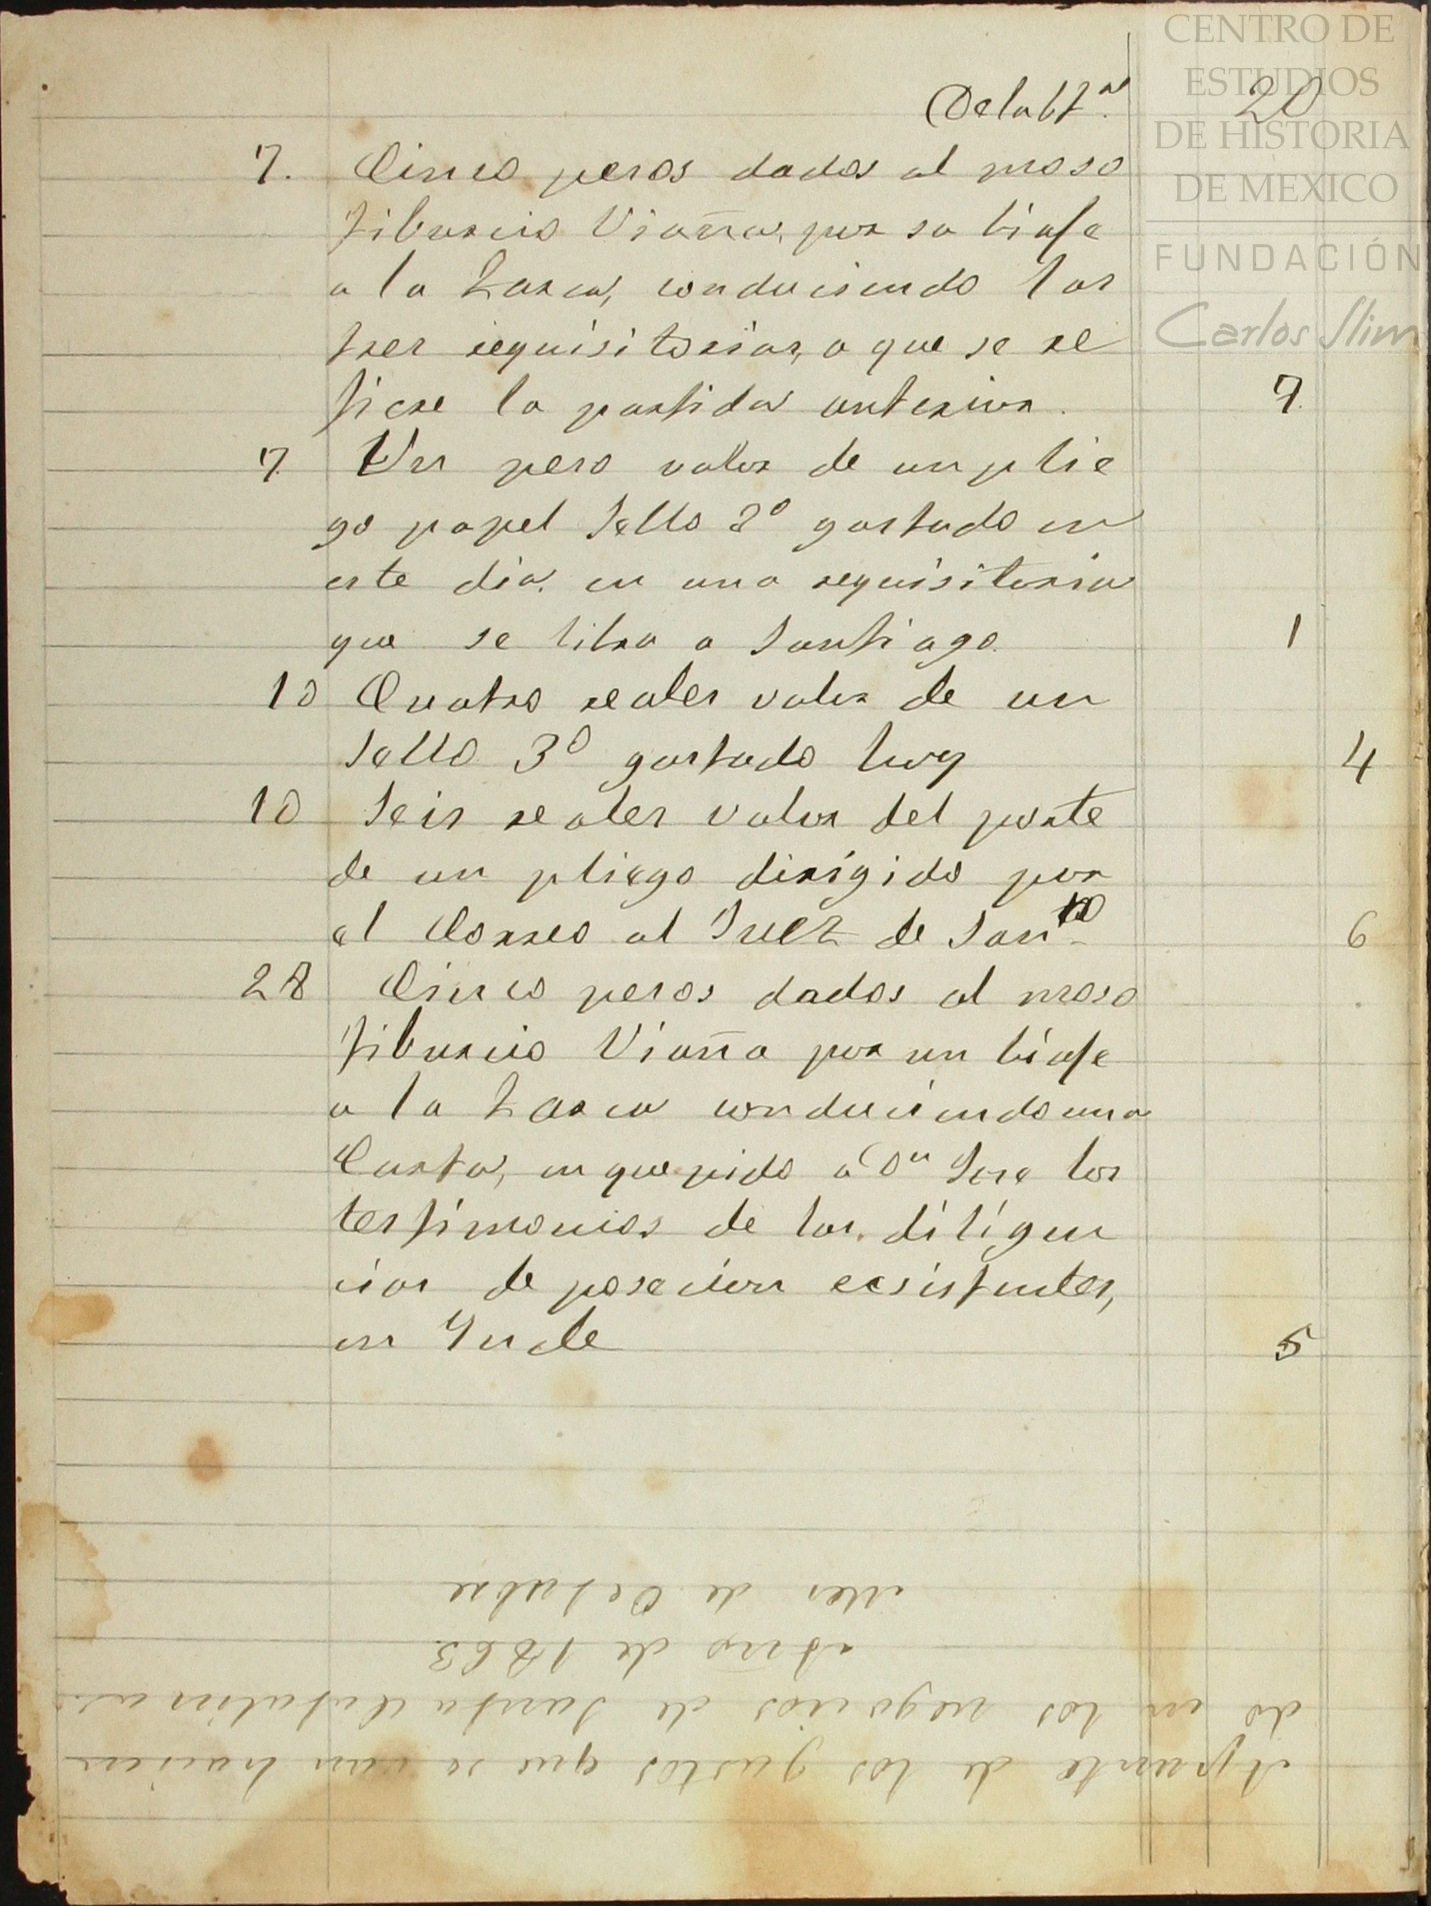 CENTRO DE
ESTUDIOS
DE HISTORIA
DE MEXICO
FUNDACIÓN
Carlos Slim
De la 20
7. Cinco pesos dados al moso
Tiburcio Viaña, por su biaje
a la Zarca, conduciendo las
tres requisitorias, a que se re
fiere la partida anterior. 7.
7. Un peso valor de un plie
go papel Sello 2º gastado en
este dia, en una requisitoria
que se libra a Santiago. 1
10 Cuatro reales valor de un
Sello 3º gastado hoy 4
10 Seis reales valor del porte
de un pliego dirigido por
el Correo al Juez de Santº 6
28 Cinco pesos dados al moso
Tiburcio Viaña por un biaje
a la Zarca conduciendo una
Carta, en que pido a Dn Jose los
testimonios de las diligen
cias de posecion ecsistentes,
en Inde 5
Apunte de los gastos que se van hacien
do en los negocios de Santa Catalina
Año de 1863
Mes de Octubre